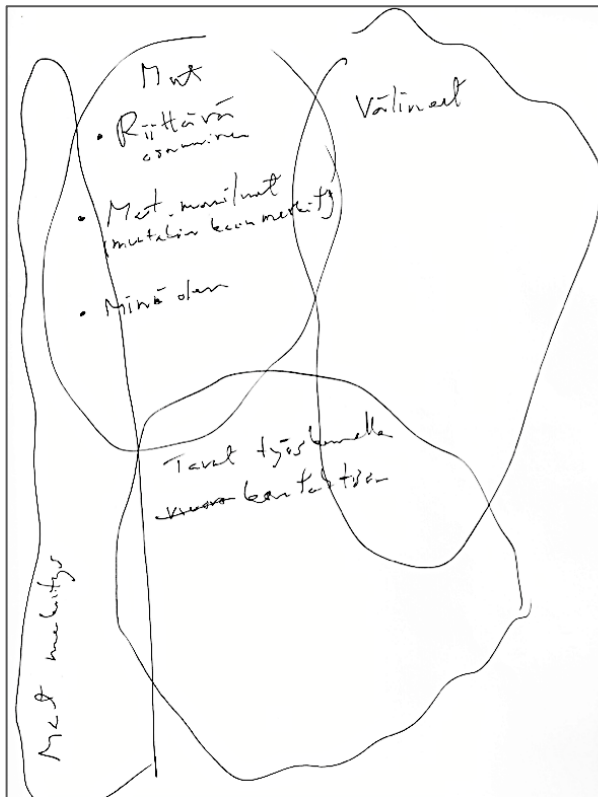 Mat
• Riittävä
osaaminen
• Mat. maailmat
(muutakin kuin merkity)
• Minä olen
Välineet
Tavat työskennellä
kontaktissa
Mat merkitys